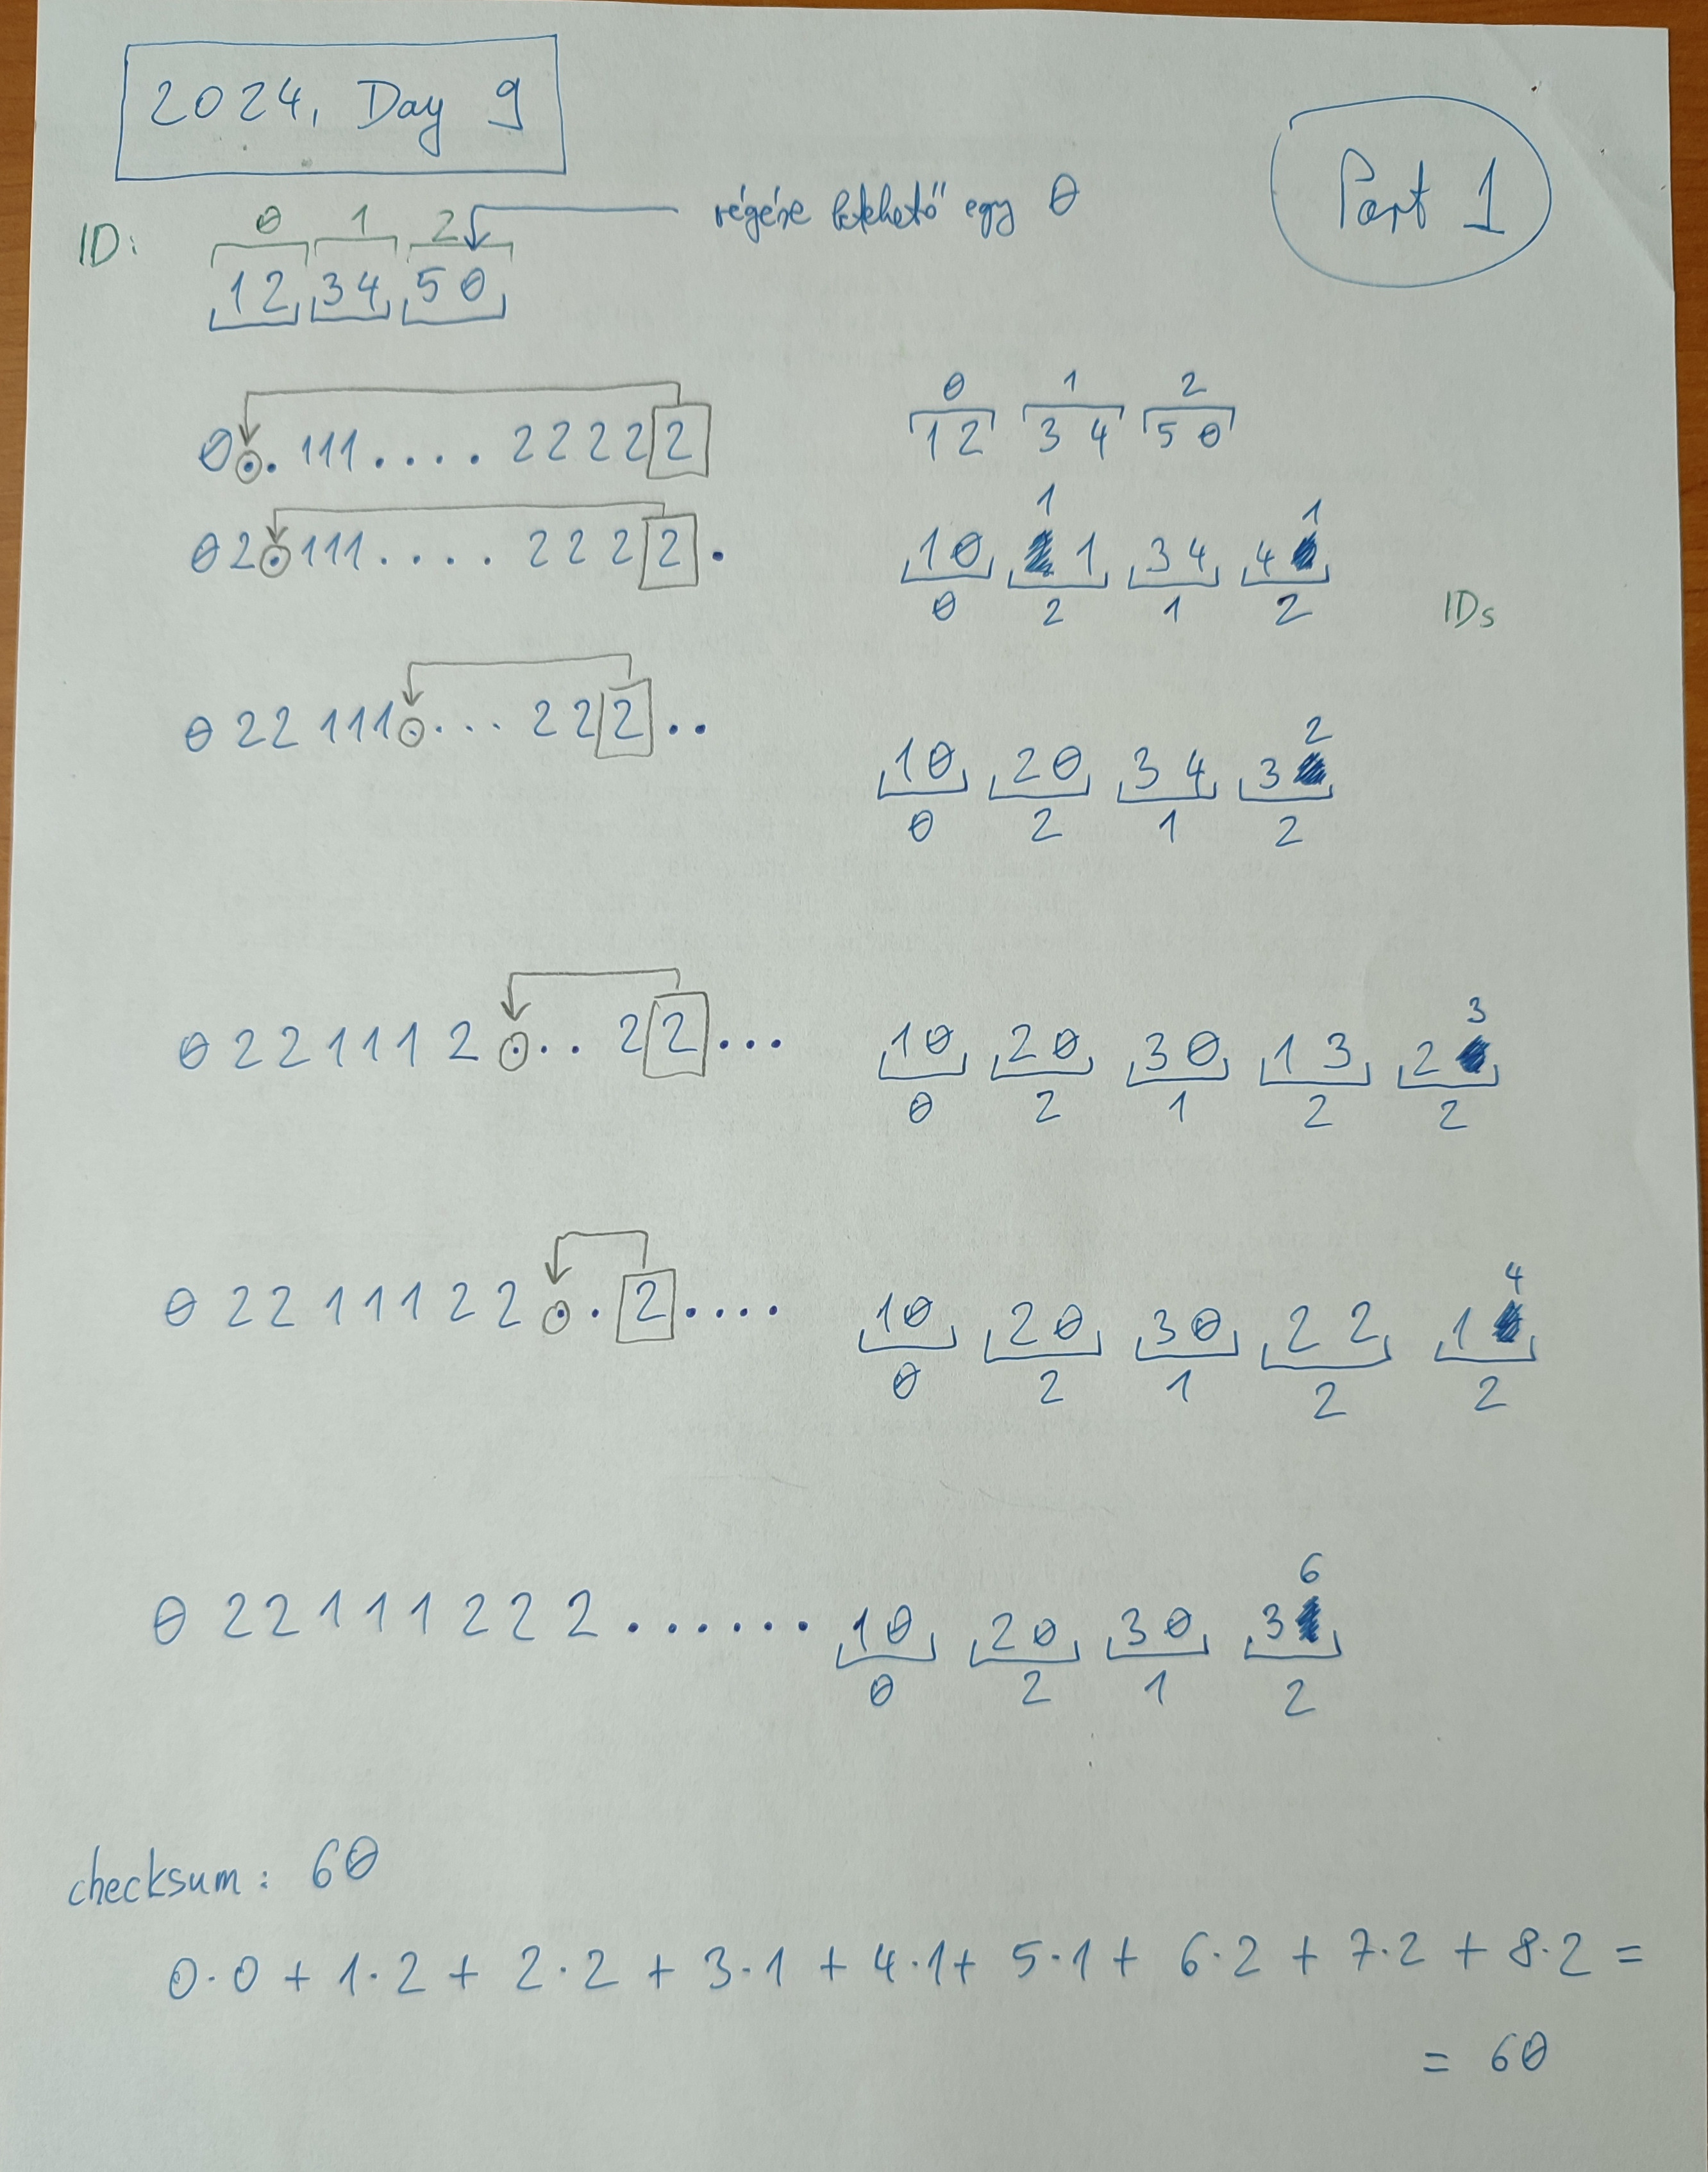 2024, Day 9
Part 1
ID: 0 1 2
végére tehető egy 0
12 34 50
0..111....22222
0 1 2
12 34 50
02.111....2222.
1 1
10 1 34 4
0 2 1 2
IDs
022111....222..
2
10 20 34 3
0 2 1 2
0221112...22...
3
10 20 30 13 2
0 2 1 2 2
02211122..2....
4
10 20 30 22 1
0 2 1 2 2
022111222......
6
10 20 30 3
0 2 1 2
checksum: 60
0·0 + 1·2 + 2·2 + 3·1 + 4·1 + 5·1 + 6·2 + 7·2 + 8·2 =
= 60